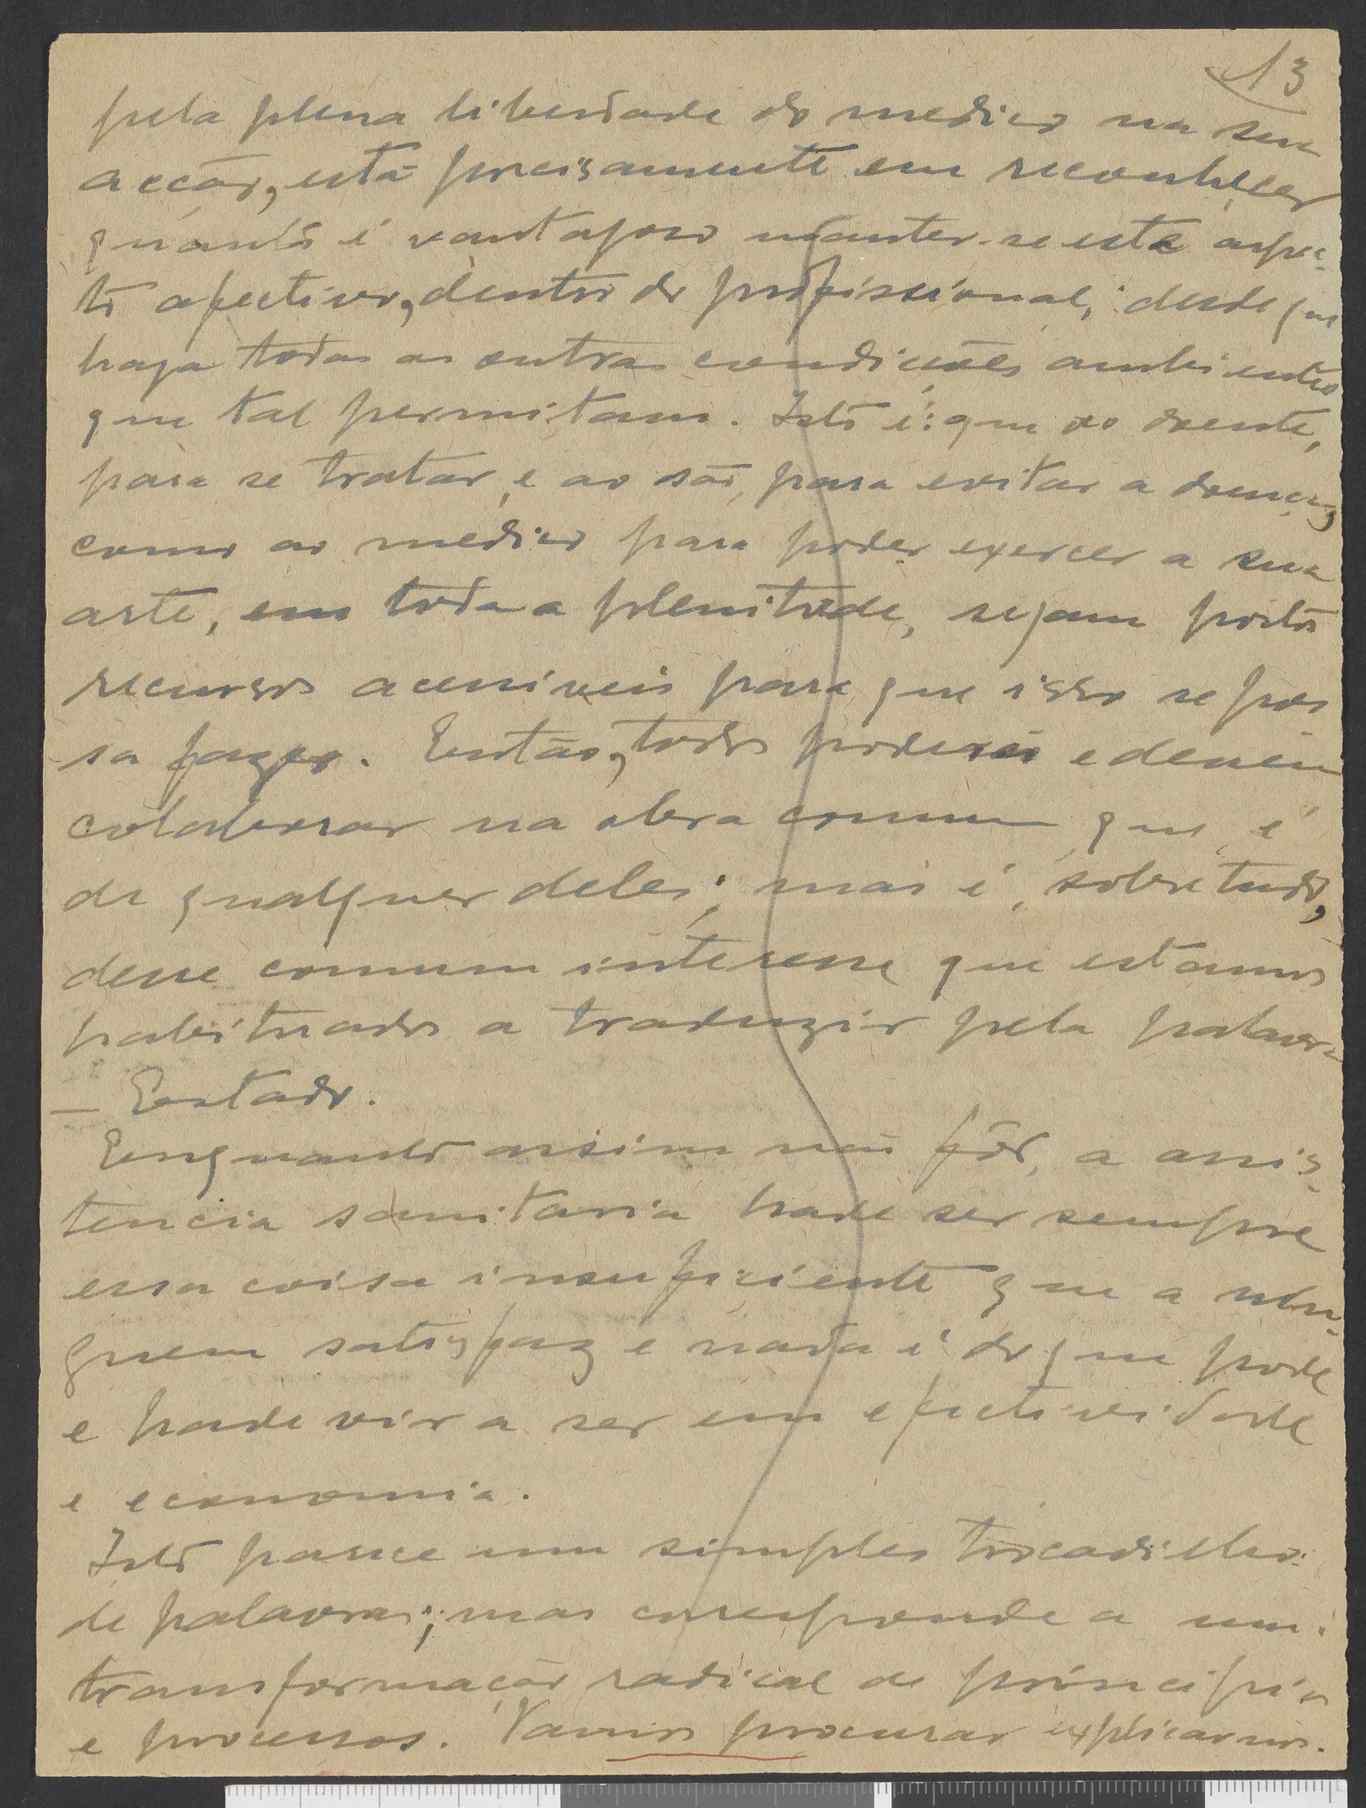 13
pela plena liberdade do medico na sua
acção, está precisamente em reconhecer
quanto é vantajoso manter-se este aspec-
to afectivo, dentro do profissional, desde que
haja todas as outras condições ambientes
que tal permitam. Isto é: que ao doente,
para se tratar, e ao são, para evitar a doença,
como ao medico para poder exercer a sua
arte, em toda a plenitude, sejam postos
recursos acessiveis para que isso se pos
sa fazer. Então, todos podem e devem
colaborar na obra comum que é
de qualquer deles; mas é, sobretudo,
desse comum interesse que estamos
habituados a traduzir pela palavra
— Estado.
Enquanto assim não fôr, a assis-
tencia sanitaria hade ser sempre
essa coisa insuficiente que a nin-
guem satisfaz e nada é do que pode
e hade vir a ser em efectividade
e economia.
Isto parece um simples trocadilho
de palavras; mas corresponde a uma
transformação radical de principios
e processos. Vamos procurar explicarmos.